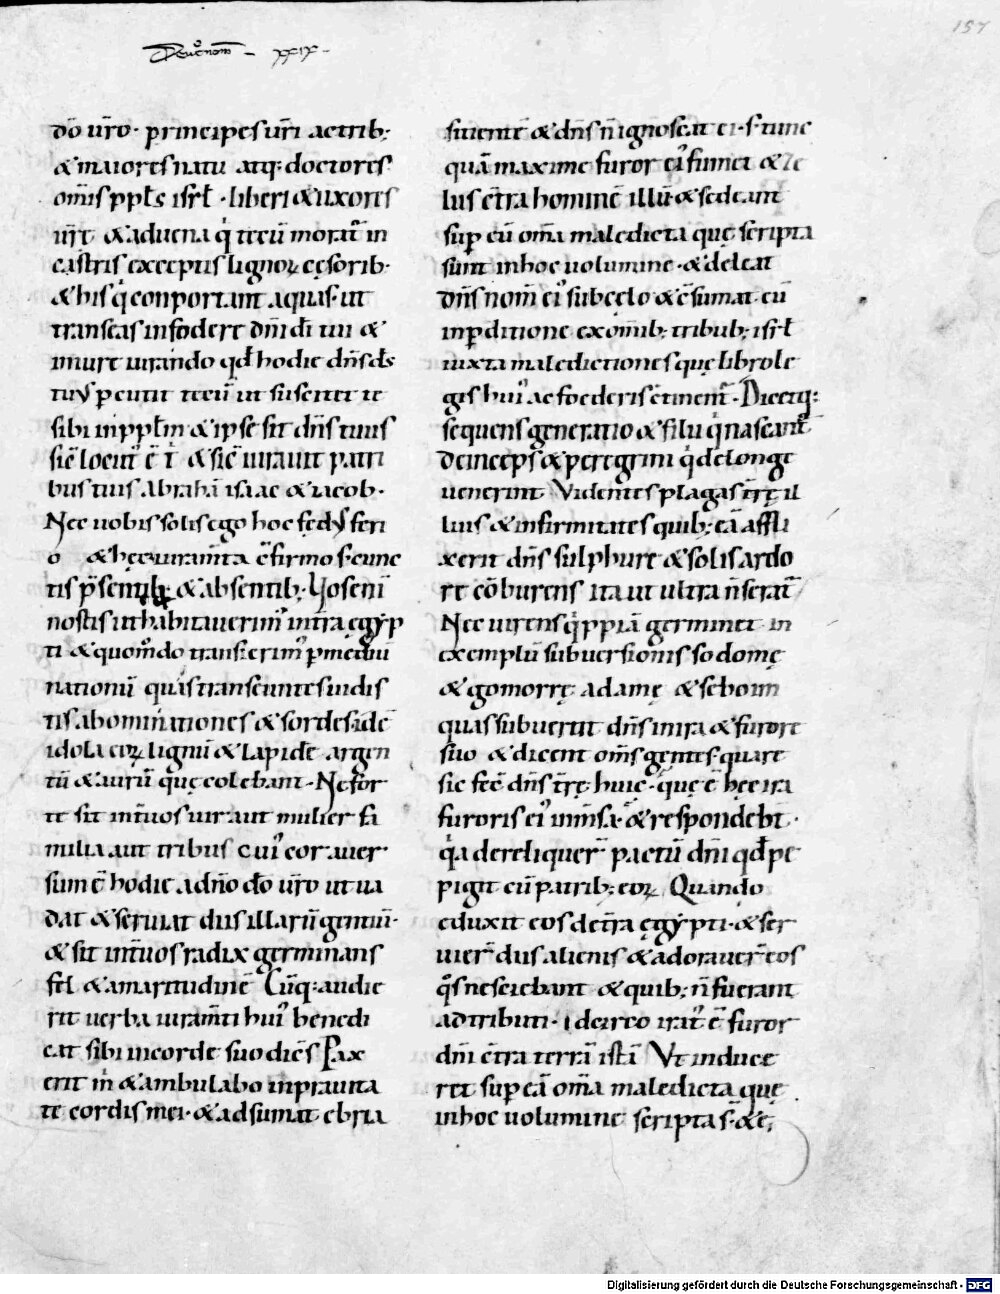 Deut̾nom̄ – xxix –
157
dō ur̄o· principes ur̄i ac trib;
& maiores natu atq: doctores
om̄is ppl̄s isrl̄ · liberi & uxores
ur̄e & aduena q̇ tecū morat᷑ in
castris exceptis lignoꝝ cęsorib·
& his q̇ conportant aquas· ut
transeas in foedere dn̄i dī tui &
in iure iurando qd̄ hodie dn̄s ds̄
tuus percutit tecū ut suscitet te
sibi in ppl̄m & ipse sit dn̄s tuus
sic̄ locut᷒ ē t̄ & sic̄ iurauit patri
bus tuis abrahā isaac & iacob·
Nec uobis solis ego hoc fędus feri
o & hęc iuram̄ta c̄firmo s; cunc
tis p̄sentib; & absentib; Vos enī
nostis ut habitauerim᷒ in tra ęgyp
ti & quom̊do transierim᷒ p mediū
nationū quas transeuntes uidis
tis abominationes & sordes id ē
idola eoꝝ lignū & lapidē argen
tū & aurū quę colebant· Ne for
te sit int̄ uos uir aut mulier fa
milia aut tribus cui᷒ cor auer
sum ē hodie a dn̄o dō ur̄o ut ua
dat & seruiat diis illarū gentiū·
& sit int̄ uos radix germinans
fel & amaritudinē Cūq: audie
rit uerba iuram̄ti hui᷒ benedi
cat sibi in corde suo dicēs Pax
erit m̄ & ambulabo in prauita
te cordis mei· & adsumat ebria
sitientē & dn̄s n̄ ignoscat ei· s; tunc
quā maxime furor ei᷒ fumet & ze
lus c̄tra hominē illū & sedeant
sup eū om̄a maledicta quę scripta
sunt in hoc uolumine · & deleat
dn̄s nom̄ ei᷒ sub cęlo & c̄sumat eū
in pditione ex om̄ib; tribub; isrl̄
iuxta maledictiones quę libro le
gis hui᷒ ac foederis c̄tinent᷑· Dicetq:
sequens generatio & filii q̇ nascent᷑
deinceps & peregrini q̇ de longe
uenerint Videntes plagas tr̄ę il
lius & infirmitates quib; eā affli
xerit dn̄s sulphure & solis ardo
re cōburens ita ut ultra n̄ serat᷑
Nec uirens q̇ppiā germinet in
exemplū subuersionis sodomę
& gomorrę adamę & seboim
quas subuertit dn̄s in ira & furore
suo & dicent om̄s gentes· quare
sic fec̄ dn̄s tr̄ę huic· quę ē hęc ira
furoris ei᷒ inm̄sa· & respondeb̄t·
q̇a dereliquer̄ pactū dn̄i qd̄ pe
pigit cū patrib; eoꝝ Quando
eduxit eos de tr̄a ęgypti· & ser
uier̄ diis alienis & adorauer̄ eos
q̇s nesciebant & quib; n̄ fuerant
adtributi· Idcirco irat᷒ ē furor
dn̄i c̄tra terrā istā Vt induce
ret sup eā om̄a maledicta quę
in hoc uolumine scripta s̄· & ē;
Digitalisierung gefördert durch die Deutsche Forschungsgemeinschaft - DFG